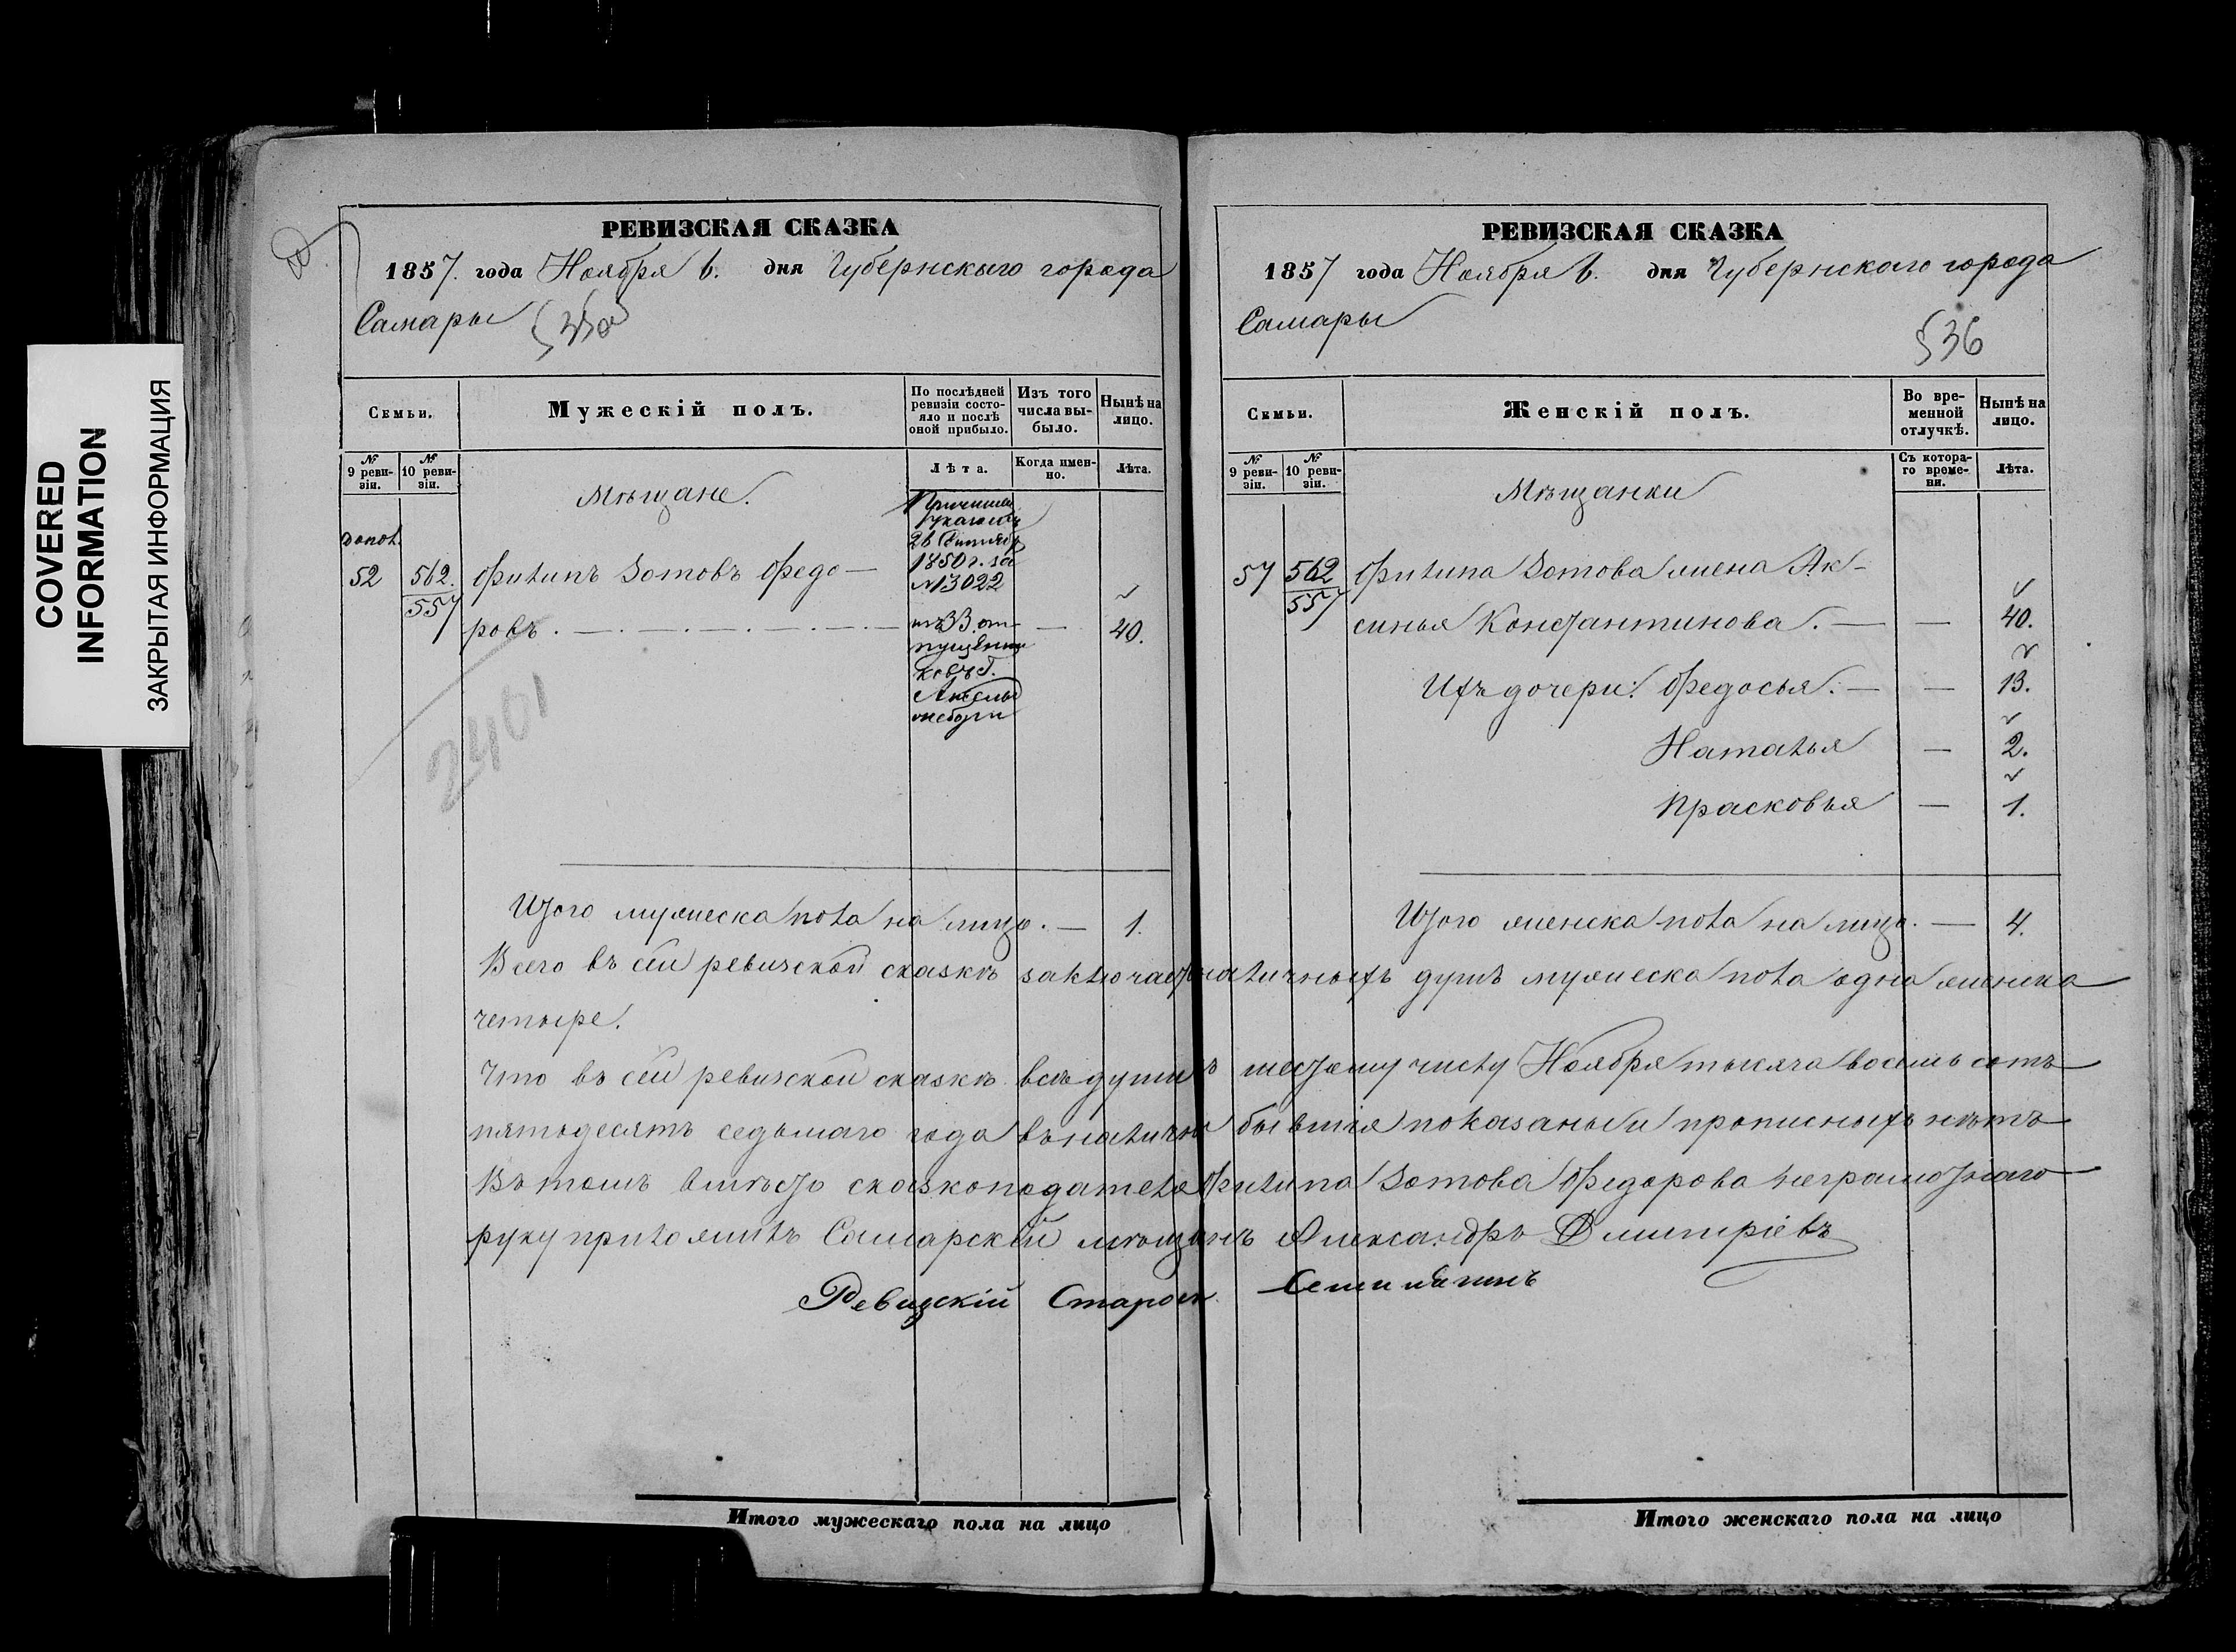 COVERED
INFORMATION
ЗАКРЫТАЯ ИНФОРМАЦИЯ
РЕВИЗСКАЯ СКАЗКА
1857. года Ноября 6. дня Губернскаго города
Самары
Семьи.
Мужескій полъ.
По послѣдней
ревизіи состо-
яло и послѣ
оной прибыло.
Изъ того
числа вы-
было.
Нынѣ на
лицо.
№
9 реви-
зіи.
№
10 реви-
зіи.
Лѣта.
Когда имен-
но.
Лѣта.
Мѣщане.
допол.
52 562. Филипъ Зотовъ Федо-
557
ровъ. 40.
26
1850 г. за
№ 3022
изъ
2401
Итого мужеска пола на лицо. — 1.
РЕВИЗСКАЯ СКАЗКА
1857 года Ноября 6. дня Губернскаго города
Самары
536
Семьи.
Женскій полъ.
Во вре-
менной
отлучкѣ.
Нынѣ на
лицо.
№
9 реви-
зіи.
№
10 реви-
зіи.
Съ котора-
го време-
ни.
Лѣта.
Мѣщанки
57 562 Филипа Зотова жена Ак-
557
синья Константинова. — — 40.
Ихъ дочери: Федосья. — — 13.
Наталья — 2.
Прасковья — 1.
Итого женска пола на лицо. — 4.
Всего въ сей ревизской сказкѣ заключается наличныхъ душъ мужеска пола одна женска
четыре.
Что въ сей ревизской сказкѣ всѣ души къ шестому числу Ноября тысяча восемь сотъ
пятьдесятъ седьмаго года въ наличіи бывшія показаны и прописныхъ нѣтъ
Въ томъ вмѣсто сказкоподателя Филипа Зотова Федорова неграмотнаго
руку приложилъ Самарскій мѣщанинъ Александръ Дмитріевъ
Ревизскій Староста
Итого мужескаго пола на лицо
Итого женскаго пола на лицо